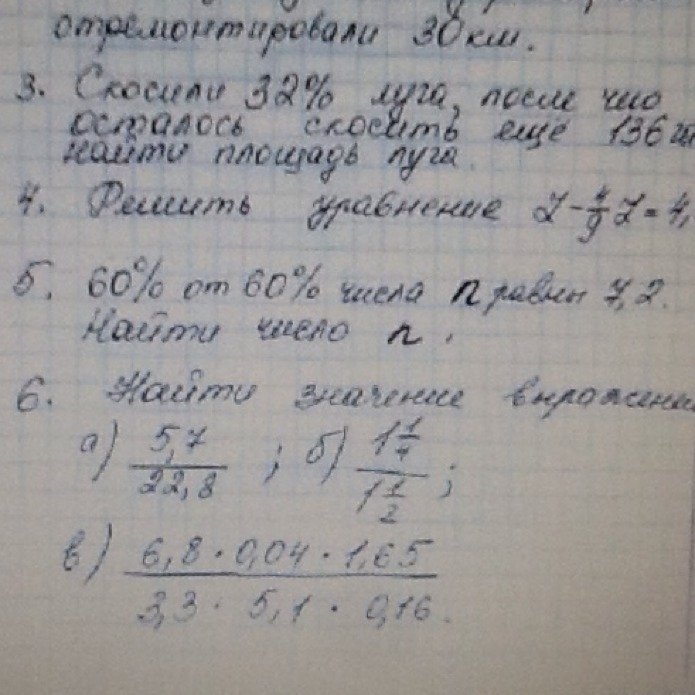 отремонтировали 30 км.
3. Скосили 32% луга, после чио
осталось скосить ещё 136 га
найти площадь луга.
4. Решить уравнение Z - 4/9 Z = 4,
5. 60% от 60% числа n равны 7,2.
Найти число n.
6. Найти значение выражени
а) 5,7/22,8 ; б) 1 1/4 / 1 1/2 ;
в) 6,8 · 0,04 · 1,65
3,3 · 5,1 · 0,16.